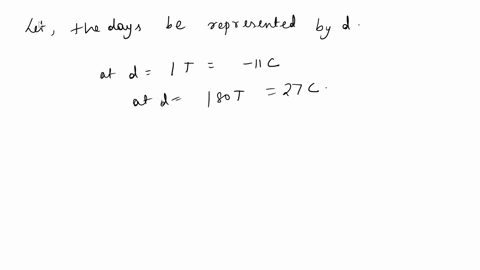 Let, the days be represented by d.
at d = 1 T = -11 C
at d = 180 T = 27 C.